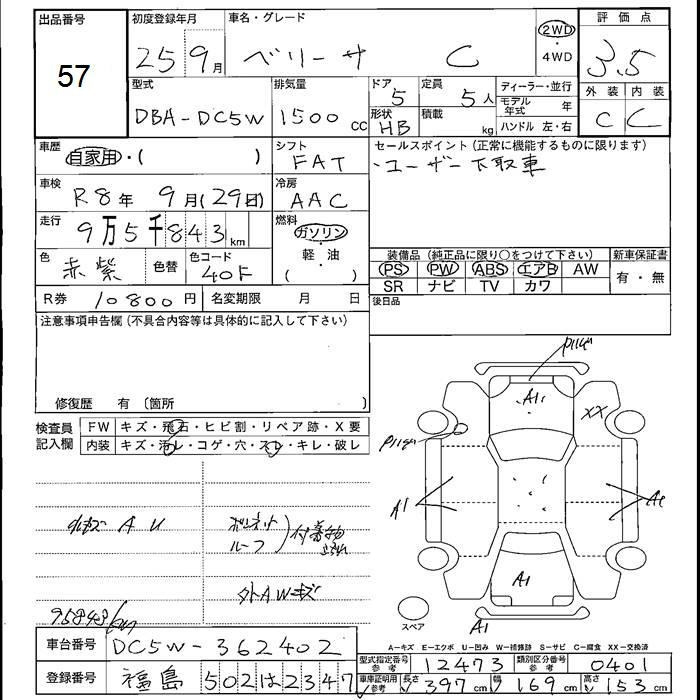 出品番号
57
初度登録年月
25 9月
車名・グレード
ベリーサ C
2WD
・
4WD
評価点
3.5
外装 内装
C C
型式
DBA-DC5W
排気量
1500 cc
ドア 5
形状 HB
定員 5人
積載 kg
ディーラー・並行
モデル年式 年
ハンドル 左・右
車歴
自家用・( )
シフト
FAT
セールスポイント(正常に機能するものに限ります)
・ユーザー下取車
車検
R8年 9月(29日)
冷房
AAC
走行
9万5千843km
燃料
ガソリン
・
軽・油
( )
色
赤紫
色替
色コード
40F
装備品(純正品に限り〇をつけて下さい)
PS PW ABS エアB AW
SR ナビ TV カワ
新車保証書
有・無
R券 10800円
名変期限 月 日
後日品
注意事項申告欄(不具合内容等は具体的に記入して下さい)
修復歴 有 〔箇所
検査員
記入欄
FW キズ・飛石・ヒビ割・リペア跡・X要
内装 キズ・汚レ・コゲ・穴・スレ・キレ・破レ
A U
ボンネット
ルーフ
付着物
外AWキズ
95843km
A1
XX
A1
A1
A1
スペア
A1
A-キズ E-エクボ U-凹み W-補修跡 S-サビ C-腐食 XX-交換済
車台番号 DC5W-362402
型式指定番号 参考 12473
類別区分番号 参考 0401
登録番号 福島 502 は 2347
車庫証明用 参考 長さ 397cm 幅 169cm 高さ 153cm